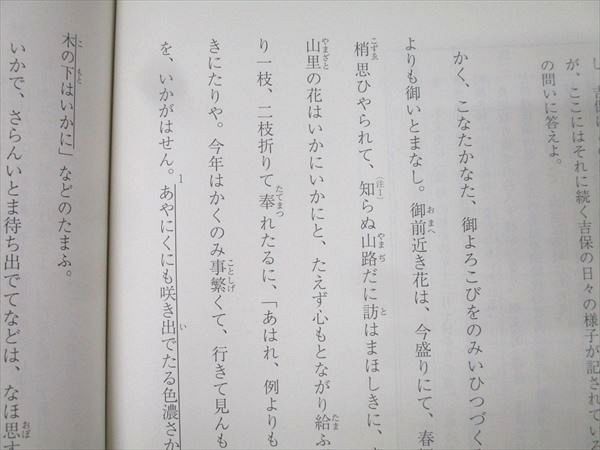 が、ここにはそれに続く吉保の日々の様子が記されている
の問いに答えよ。
かく、こなたかなた、御よろこびをのみいひつづく
よりも御いとまなし。御前近き花は、今盛りにて、春
梢思ひやられて、知らぬ山路だに訪はまほしきに、
山里の花はいかにいかにと、たえず心もとながり給ふ
り一枝、二枝折りて奉れたるに、「あはれ、例よりも
きにたりや。今年はかくのみ事繁くて、行きて見んも
を、いかがはせん。あやにくにも咲き出でたる色濃さか
木の下はいかに」などのたまふ。
いかで、さらんいとま待ち出でてなどは、なほ思す